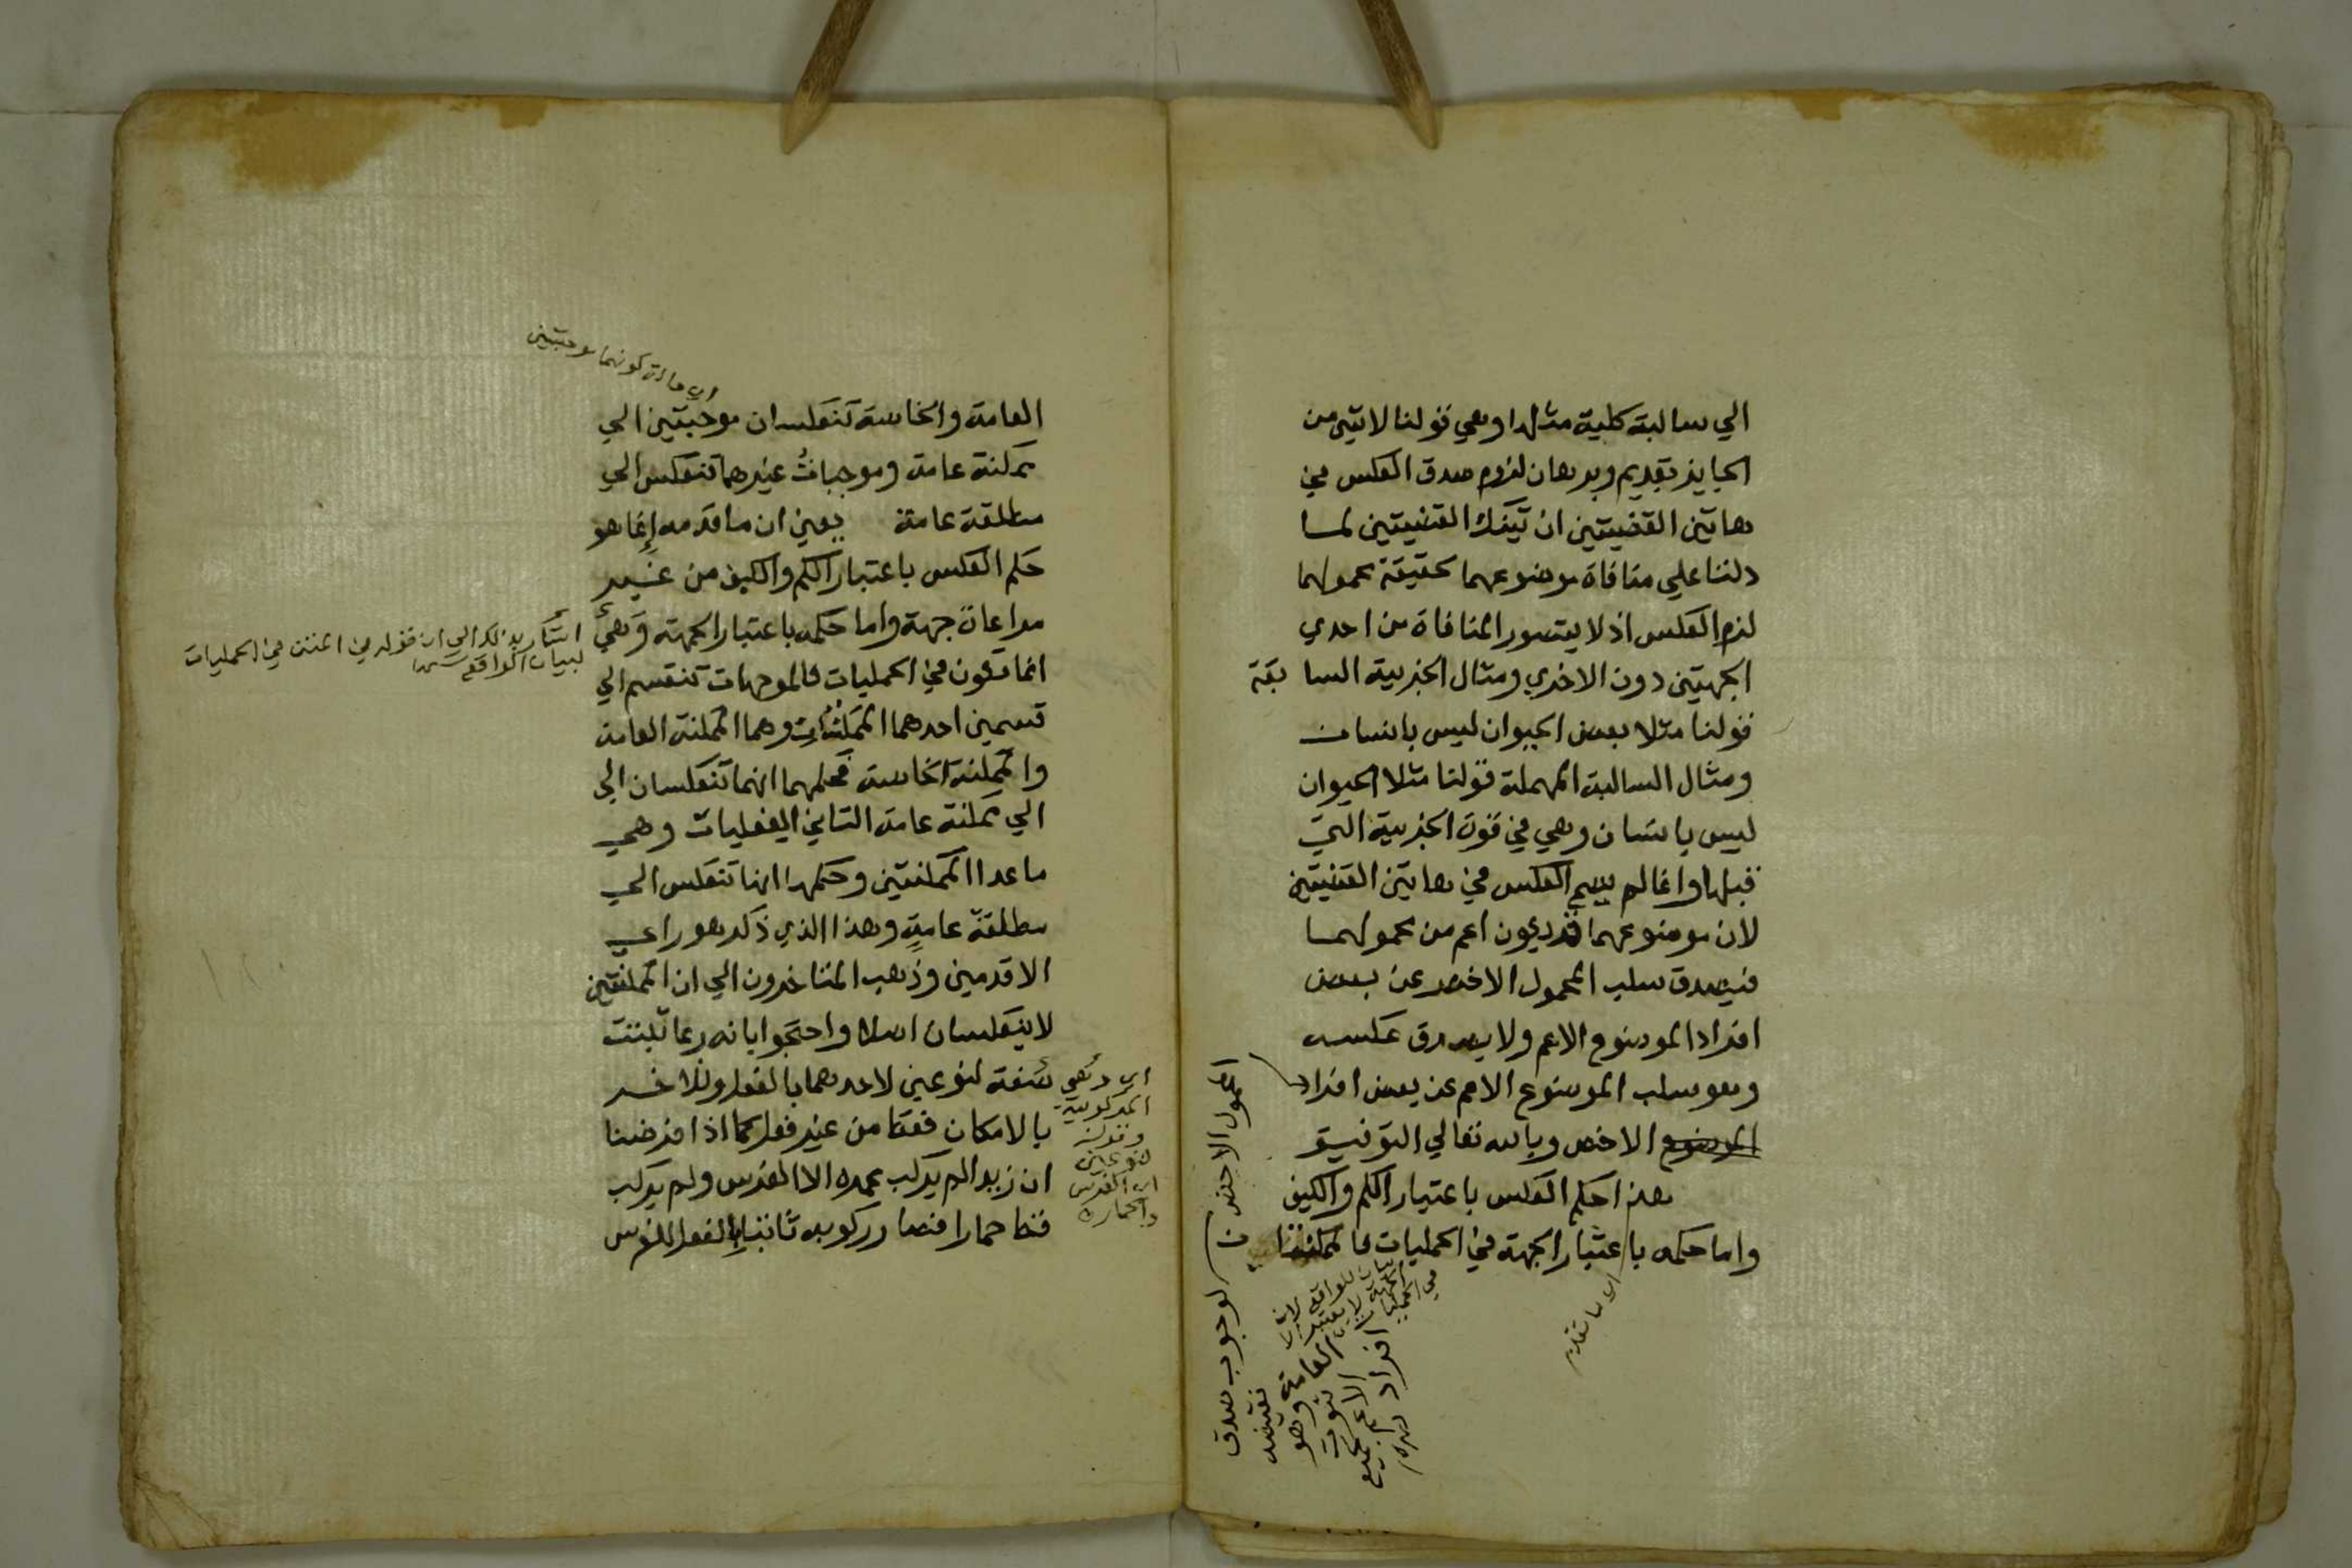 الي سالبة كلية مثلها وهي قولنا لا شي من
الحايز بقديم وبرهان لزوم صدق العكس في
هاتين القضيتين ان تينك القضيتين لما
دلتا علي منافاة موضوعهما لحقيقة محمولهما
لزم العكس اذ لا يتصور المنافاة من احدي
الجهتين دون الاخري ومثال الجزيية السابقة
قولنا مثلا بعض الحيوان ليس بانسان
ومثال السالبة المهملة قولنا مثلا الحيوان
ليس بانسان وهي في قوة الجزيية التي
قبلها وانما لم العكس في هاتين القضيتين
لان موضوعهما قد يكون اعم من محمولهما
فيصدق سلب المحمول الاخص عن بعض
افراد الموضوع الاعم ولا يصدق عكسه
وهو سلب الموضوع الاعم عن بعض افراد
الموضوع الاخص وبالله تعالي التوفيق
هذا حكم العكس باعتبار الكم والكيف
واما حكمه باعتبار الجهة في الحمليات فالممكنتا
المحمول الاخص
لوجوب صدق
نقيضه
وهو
ثبوت
الاعم لجميع
افراد
العامة
اي ما تقدم
اي حالة كونهما موجبتين
العامة والخاصة تنعكسان موجبتين الي
ممكنة عامة وموجبات غيرهما تنعكس الي
مطلقة عامة يعني ان ما قدمه إنما هو
حكم العكس باعتبار الكم والكيف من غير
مراعاة جهة واما حكمه باعتبار الجهة وهي
انما تكون في الحمليات فالموجهات تنقسم الي
قسمين احدهما الممكنات وهما الممكنة العامة
والممكنة الخاصة فحكمهما انهما تنعكسان الي
الي ممكنة عامة الثاني الفعليات وهي
ما عدا الممكنتين وحكمها انها تنعكس الي
مطلقة عامة وهذا الذي ذكره هو راي
الاقدمين وذهب المتاخرون الي ان الممكنتين
لا ينعكسان اصلا واحتجوا بانه ربما تثبت
صفة لنوعين لاحدهما بالفعل وللاخر
بالامكان فقط من غير فعل كما اذا فرضنا
ان زيدا لم يركب عمره الا الفرس ولم يركب
قط حمارا فصار ركوبه ثابتا بالفعل للفرس
اشار بذلك الي ان قوله في المتن في الحمليات
لبيان الواقع
اي وهي
المركوبية
وقوله
لنوعين
اي الفرس
والحمار